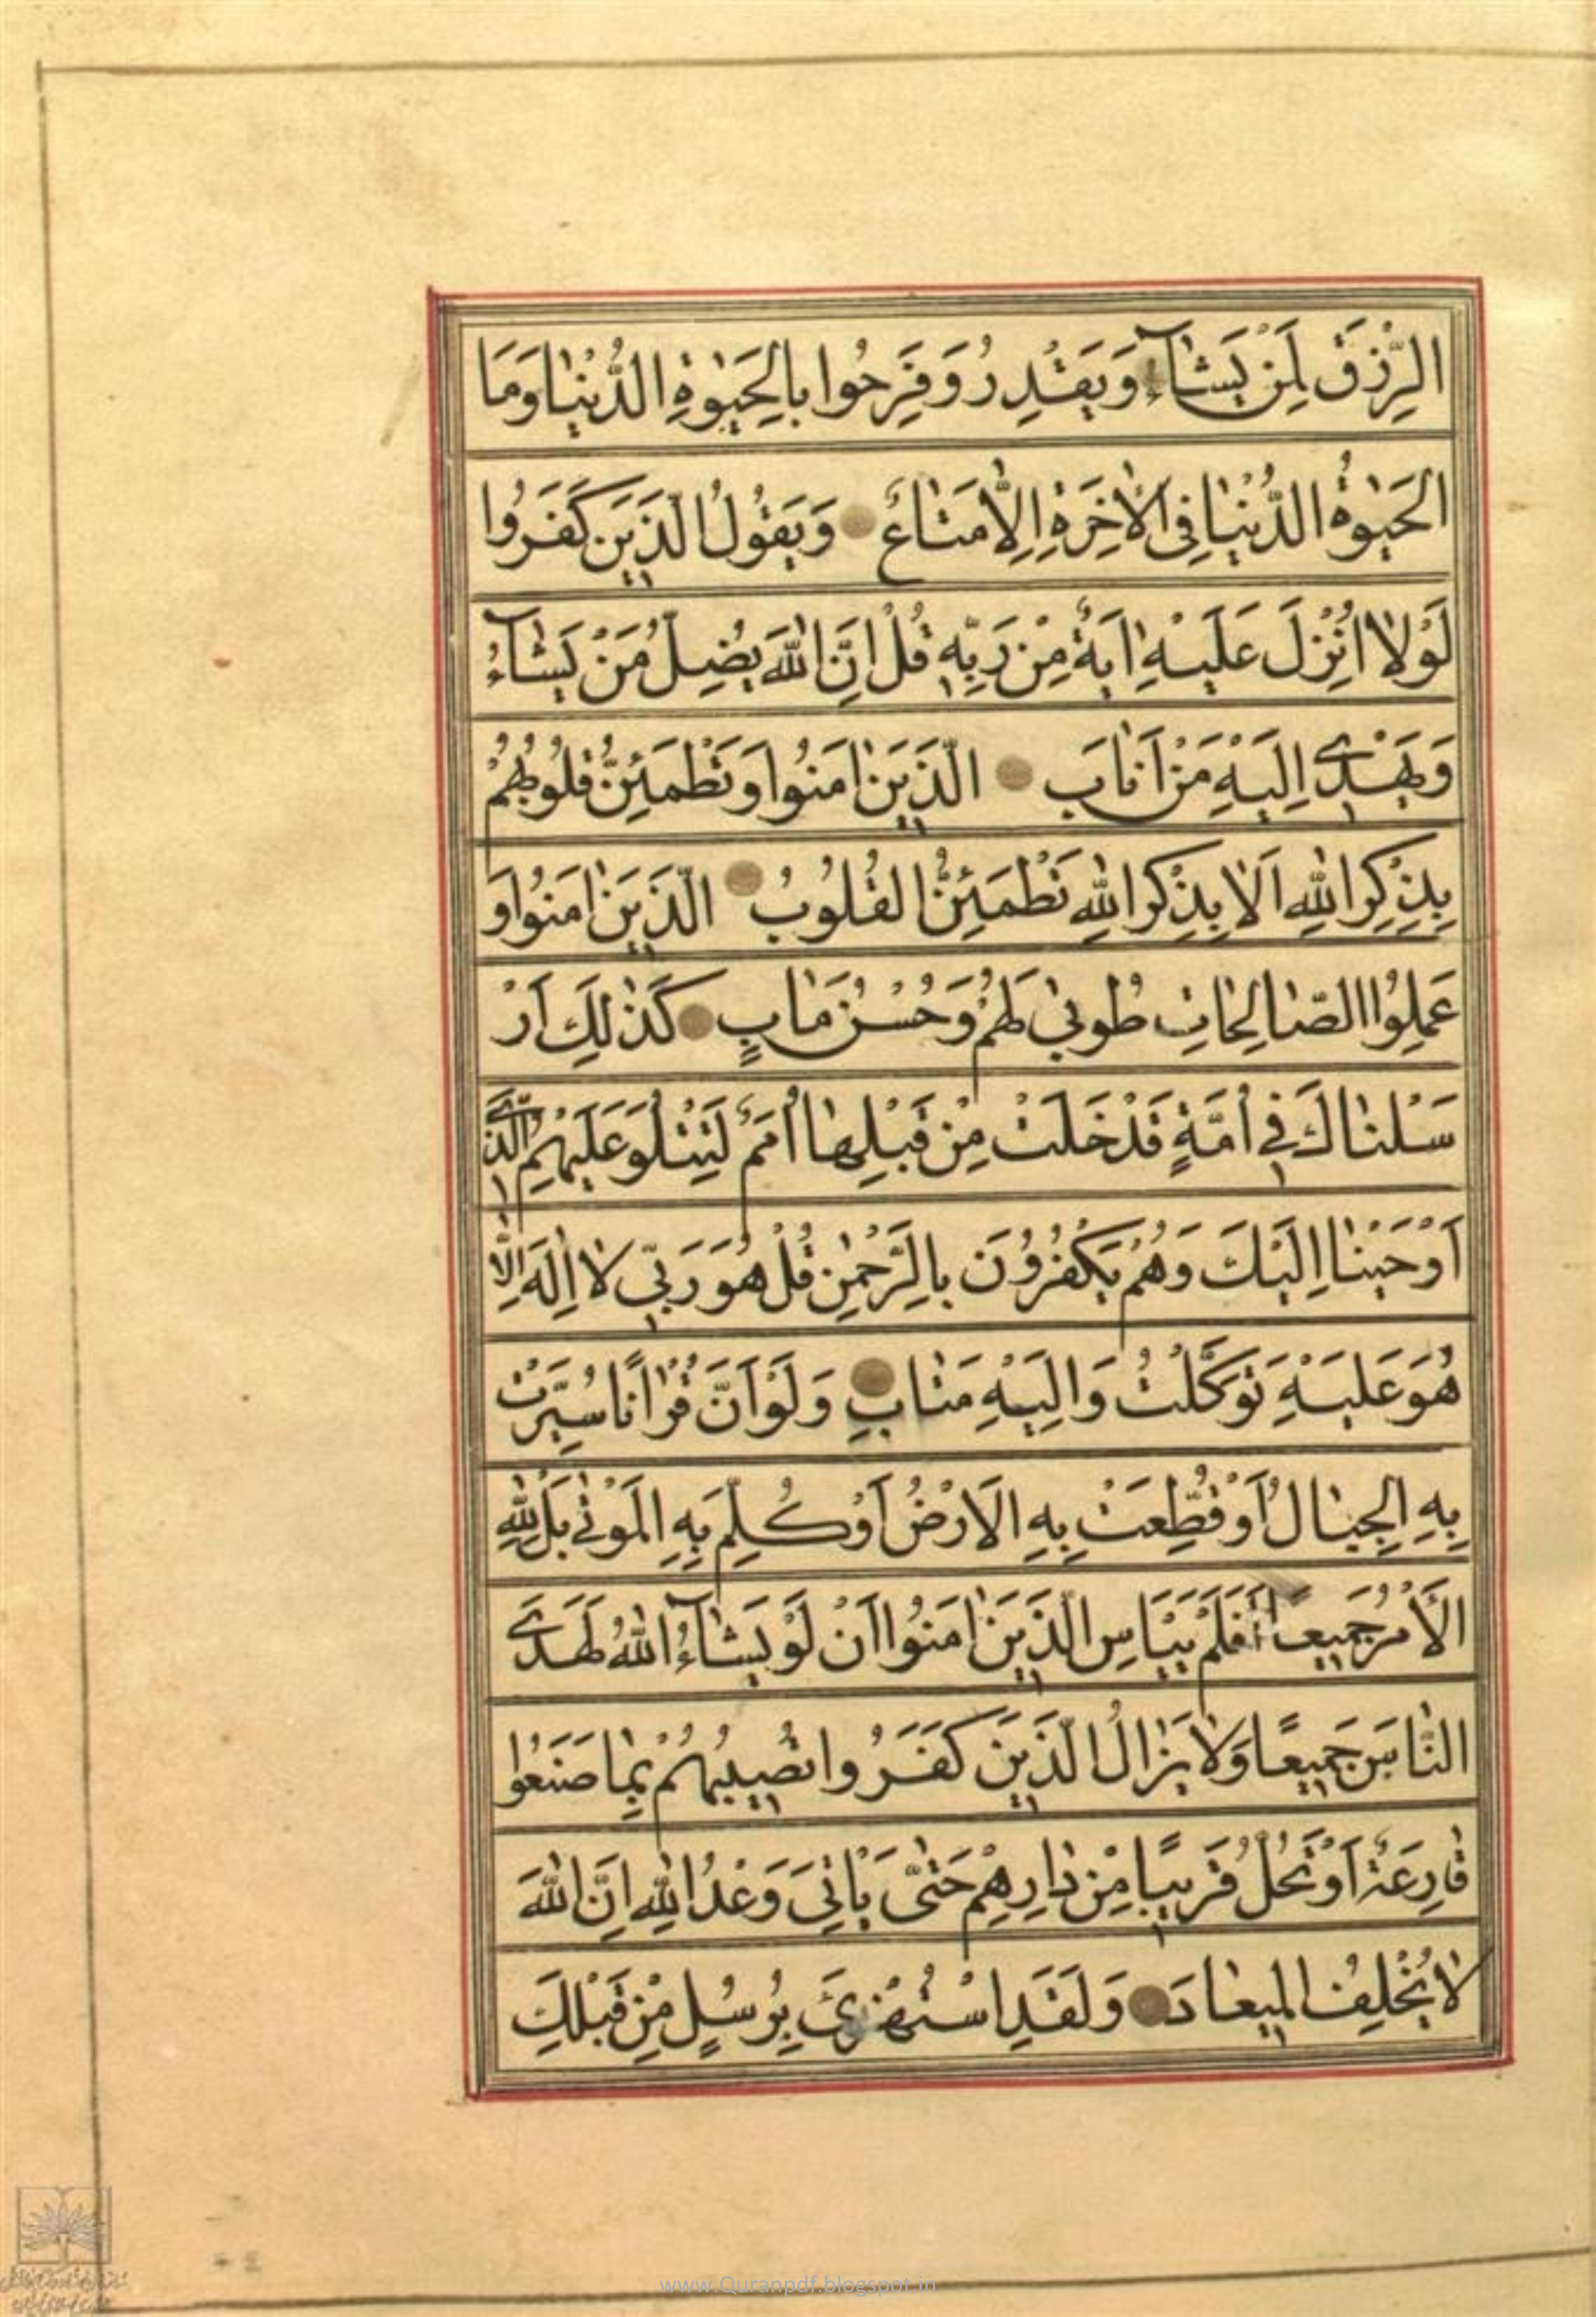 الرِّزْقَ لِمَنْ يَشَآءُ وَيَقْدِرُ وَفَرِحُوا بِالْحَيٰوةِ الدُّنْيٰا وَمَا
الْحَيٰوةُ الدُّنْيٰا فِى الْاٰخِرَةِ اِلّٰا مَتٰاعٌ وَيَقُولُ الَّذٖينَ كَفَرُوا
لَوْلٰا اُنْزِلَ عَلَيْهِ اٰيَةٌ مِنْ رَبِّهٖ قُلْ اِنَّ اللّٰهَ يُضِلُّ مَنْ يَشٰآءُ
وَيَهْدٖى اِلَيْهِ مَنْ اَنٰابَ الَّذٖينَ اٰمَنُوا وَتَطْمَئِنُّ قُلُوبُهُمْ
بِذِكْرِ اللّٰهِ اَلٰا بِذِكْرِ اللّٰهِ تَطْمَئِنُّ الْقُلُوبُ الَّذٖينَ اٰمَنُوا وَ
عَمِلُوا الصّٰالِحٰاتِ طُوبىٰ لَهُمْ وَحُسْنُ مَاٰبٍ كَذٰلِكَ اَرْ
سَلْنٰاكَ فٖى اُمَّةٍ قَدْ خَلَتْ مِنْ قَبْلِهٰا اُمَمٌ لِتَتْلُوَ عَلَيْهِمُ الَّذٖى
اَوْحَيْنٰا اِلَيْكَ وَهُمْ يَكْفُرُونَ بِالرَّحْمٰنِ قُلْ هُوَ رَبّٖى لٰا اِلٰهَ اِلّٰا
هُوَ عَلَيْهِ تَوَكَّلْتُ وَاِلَيْهِ مَتٰابِ وَلَوْ اَنَّ قُرْاٰنًا سُيِّرَتْ
بِهِ الْجِبٰالُ اَوْ قُطِّعَتْ بِهِ الْاَرْضُ اَوْ كُلِّمَ بِهِ الْمَوْتىٰ بَلْ لِلّٰهِ
الْاَمْرُ جَمٖيعًا اَفَلَمْ يَيْاَسِ الَّذٖينَ اٰمَنُوا اَنْ لَوْ يَشٰآءُ اللّٰهُ لَهَدَى
النّٰاسَ جَمٖيعًا وَلٰا يَزٰالُ الَّذٖينَ كَفَرُوا تُصٖيبُهُمْ بِمٰا صَنَعُوا
قٰارِعَةٌ اَوْ تَحُلُّ قَرٖيبًا مِنْ دٰارِهِمْ حَتّٰى يَأْتِىَ وَعْدُ اللّٰهِ اِنَّ اللّٰهَ
لٰا يُخْلِفُ الْمٖيعٰادَ وَلَقَدِ اسْتُهْزِئَ بِرُسُلٍ مِنْ قَبْلِكَ
www.Quranpdf.blogspot.in